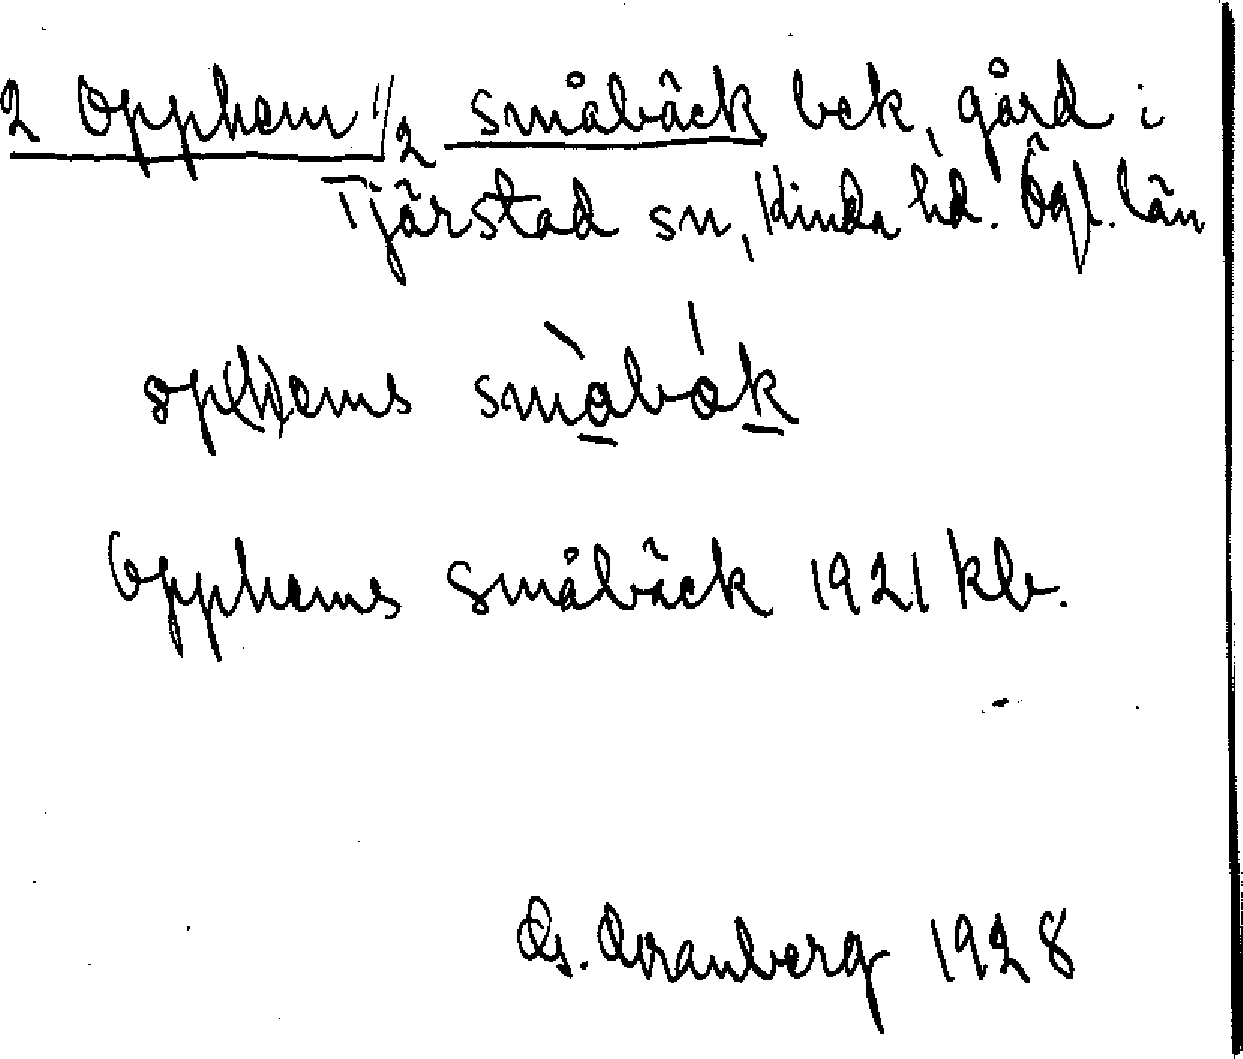 2 Opphem // 2 småbäck bek, gård i
Tjärstad sn, Kinda hd. Ögl. län
op(h)ems småbák
Opphems småbäck 1921 klr.
Gs. Granberg 1928